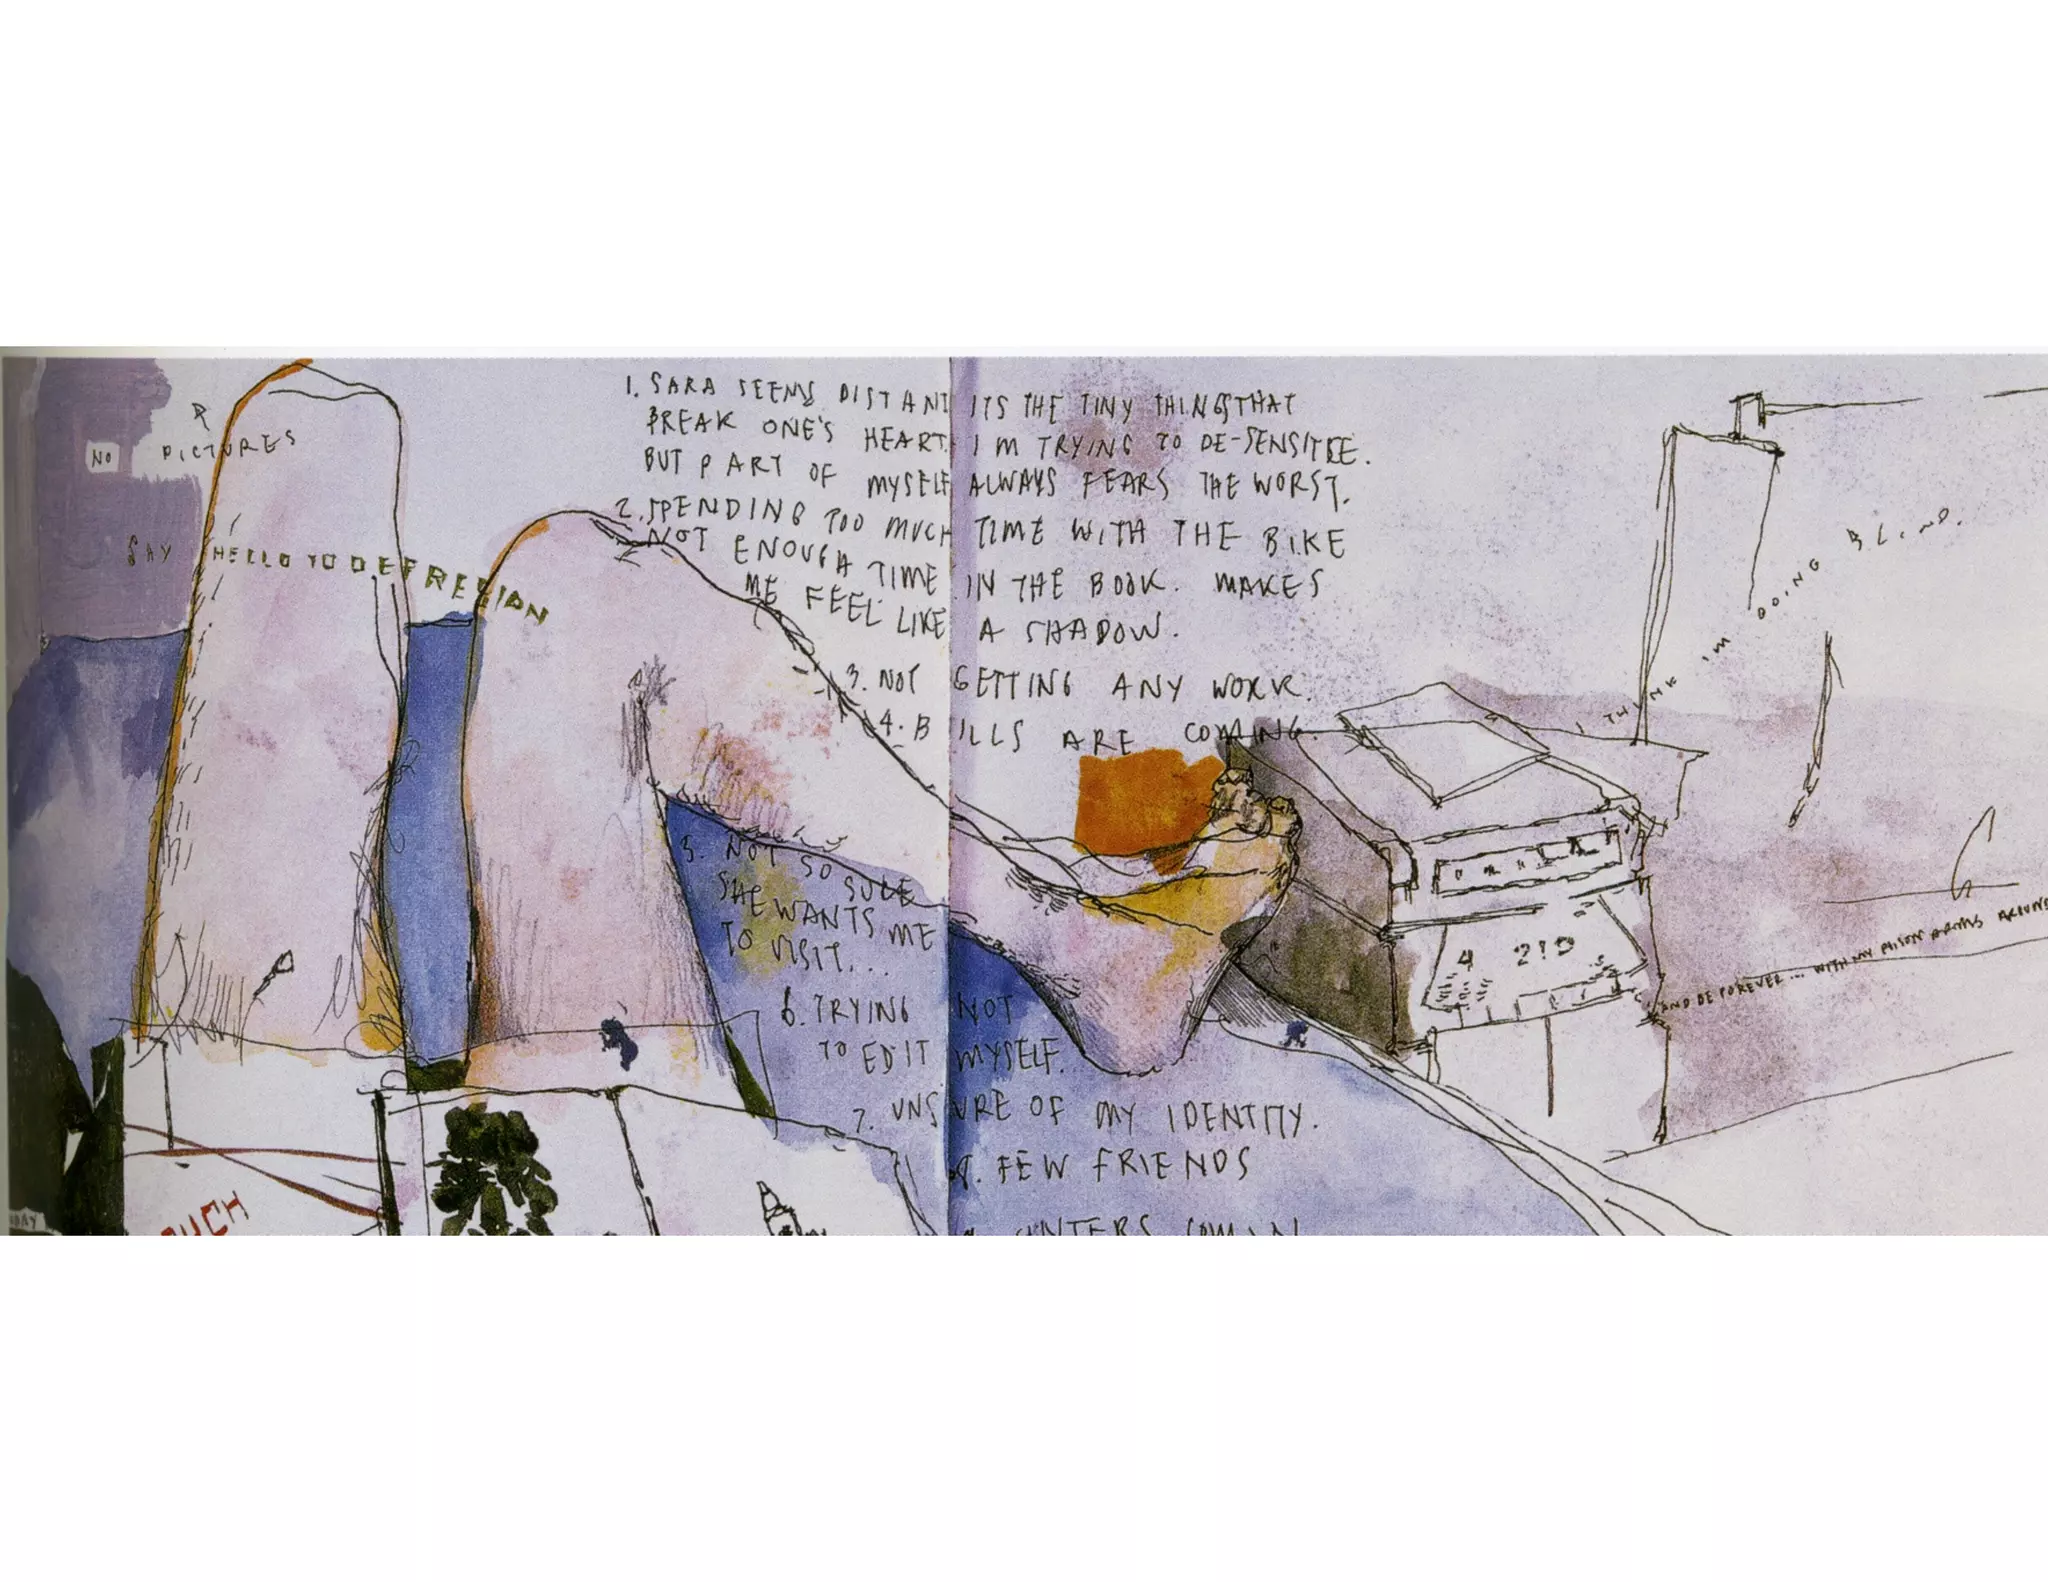 NO PICTURES
SAY HELLO TO DEPRESSION
1. SARA SEEMS DISTANT ITS THE TINY THINGS THAT
BREAK ONE'S HEART. I M TRYING TO DE-SENSITIZE.
BUT PART OF MYSELF ALWAYS FEARS THE WORST.
2. SPENDING TOO MUCH TIME WITH THE BIKE
NOT ENOUGH TIME IN THE BOOK. MAKES
ME FEEL LIKE A SHADOW.
3. NOT GETTING ANY WORK.
4. BILLS ARE COMING.
5. NOT SO SURE
SHE WANTS ME
TO VISIT...
6. TRYING NOT
TO EDIT MYSELF.
7. UNSURE OF MY IDENTITY.
8. FEW FRIENDS
I THINK IM GOING BLIND.
4 210
AND BE FOREVER... WITH MY POISON ARMS AROUND
UCH